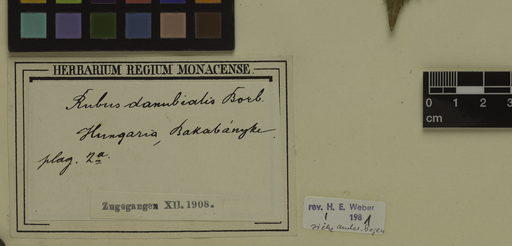 HERBARIUM REGIUM MONACENSE.
Rubus danubialis Borb.
Hungaria, Bakabánya
plag. 2a.
Zugegangen XII. 1908.
rev. H. E. Weber
! 1981
siehe ander. Bogen
0 1 2 3
cm